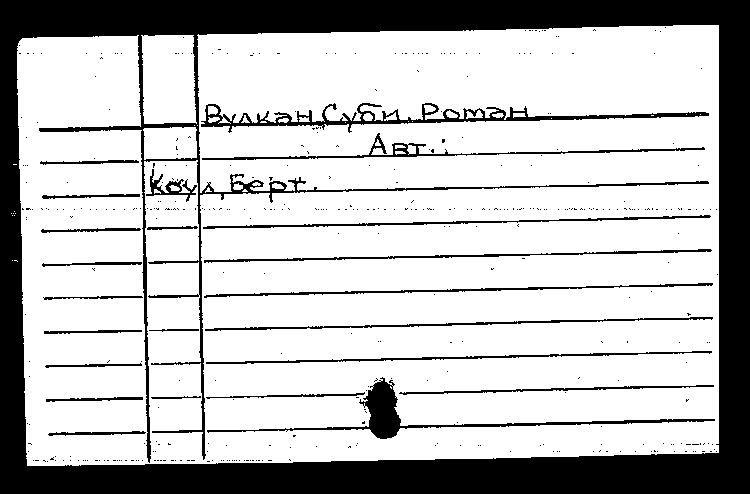 Вулкан Суби. Роман
Авт.:
Коул, Берт.